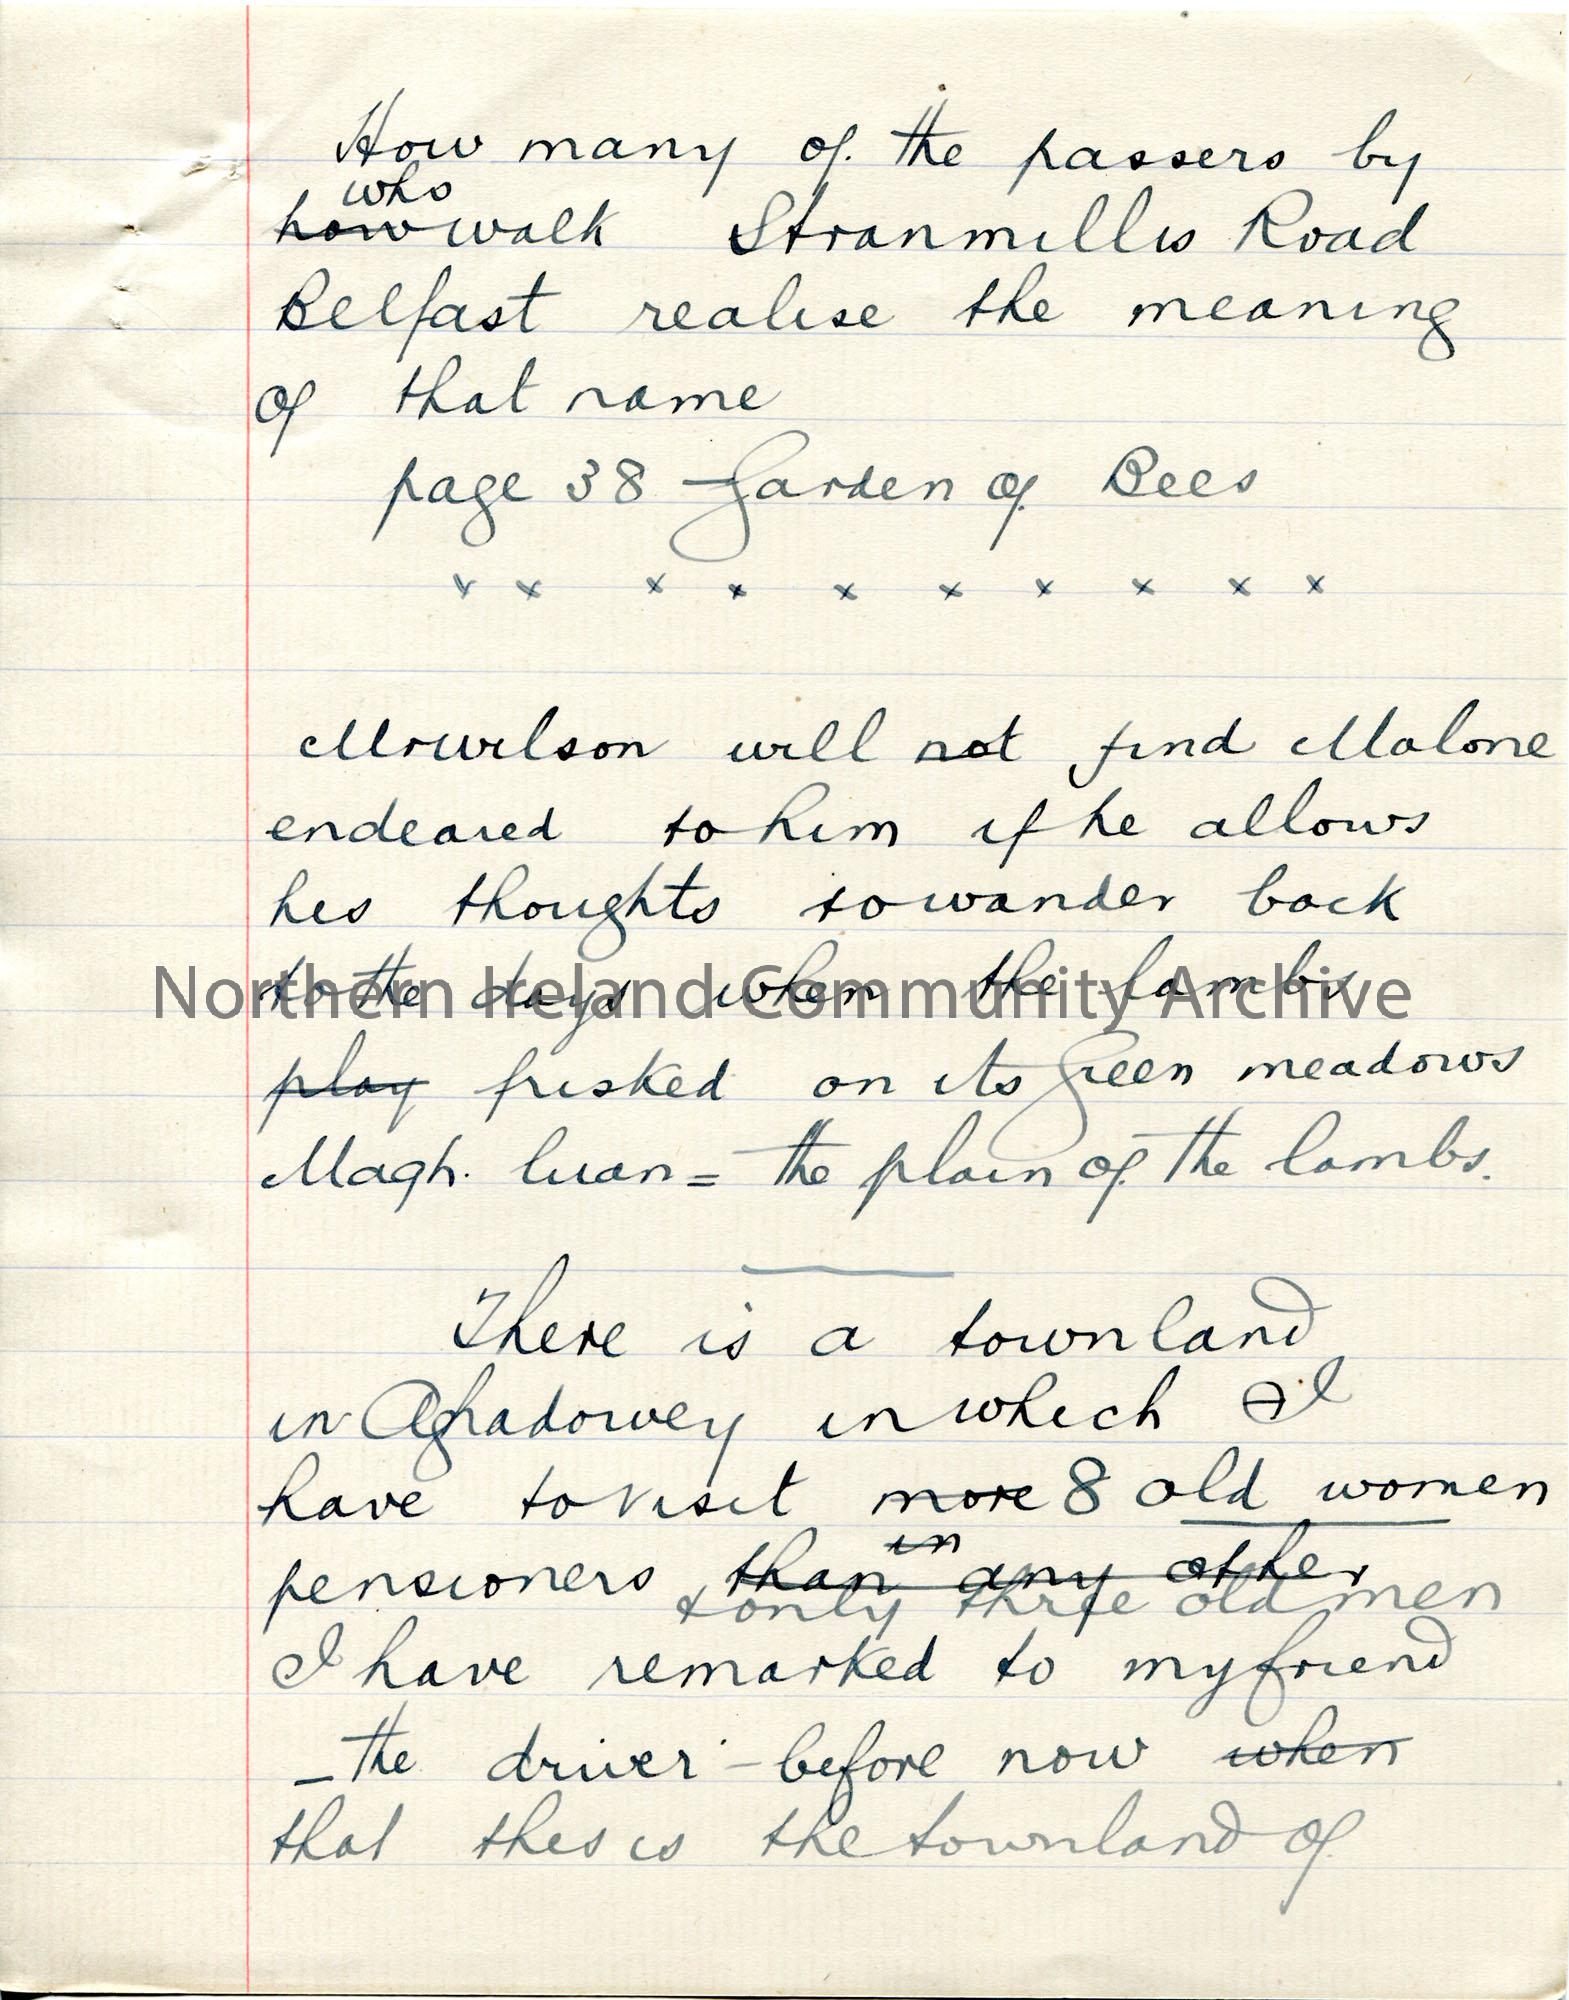 How many of the passers by
who
how walk Stranmillis Road
Belfast realise the meaning
of that name
page 38 Garden of Bees
x x x x x x x x x x
Mr Wilson will not find Malone
endeared to him if he allows
his thoughts to wander back
to the days when the lambs
Northern Ireland Community Archive
play frisked on its green meadows
Magh. luan = the plain of the lambs.
There is a townland
in Aghadowey in which I
have to visit more 8 old women
in
pensioners than any other
& only three old men
I have remarked to my friend
- the driver - before now when
that this is the townland of